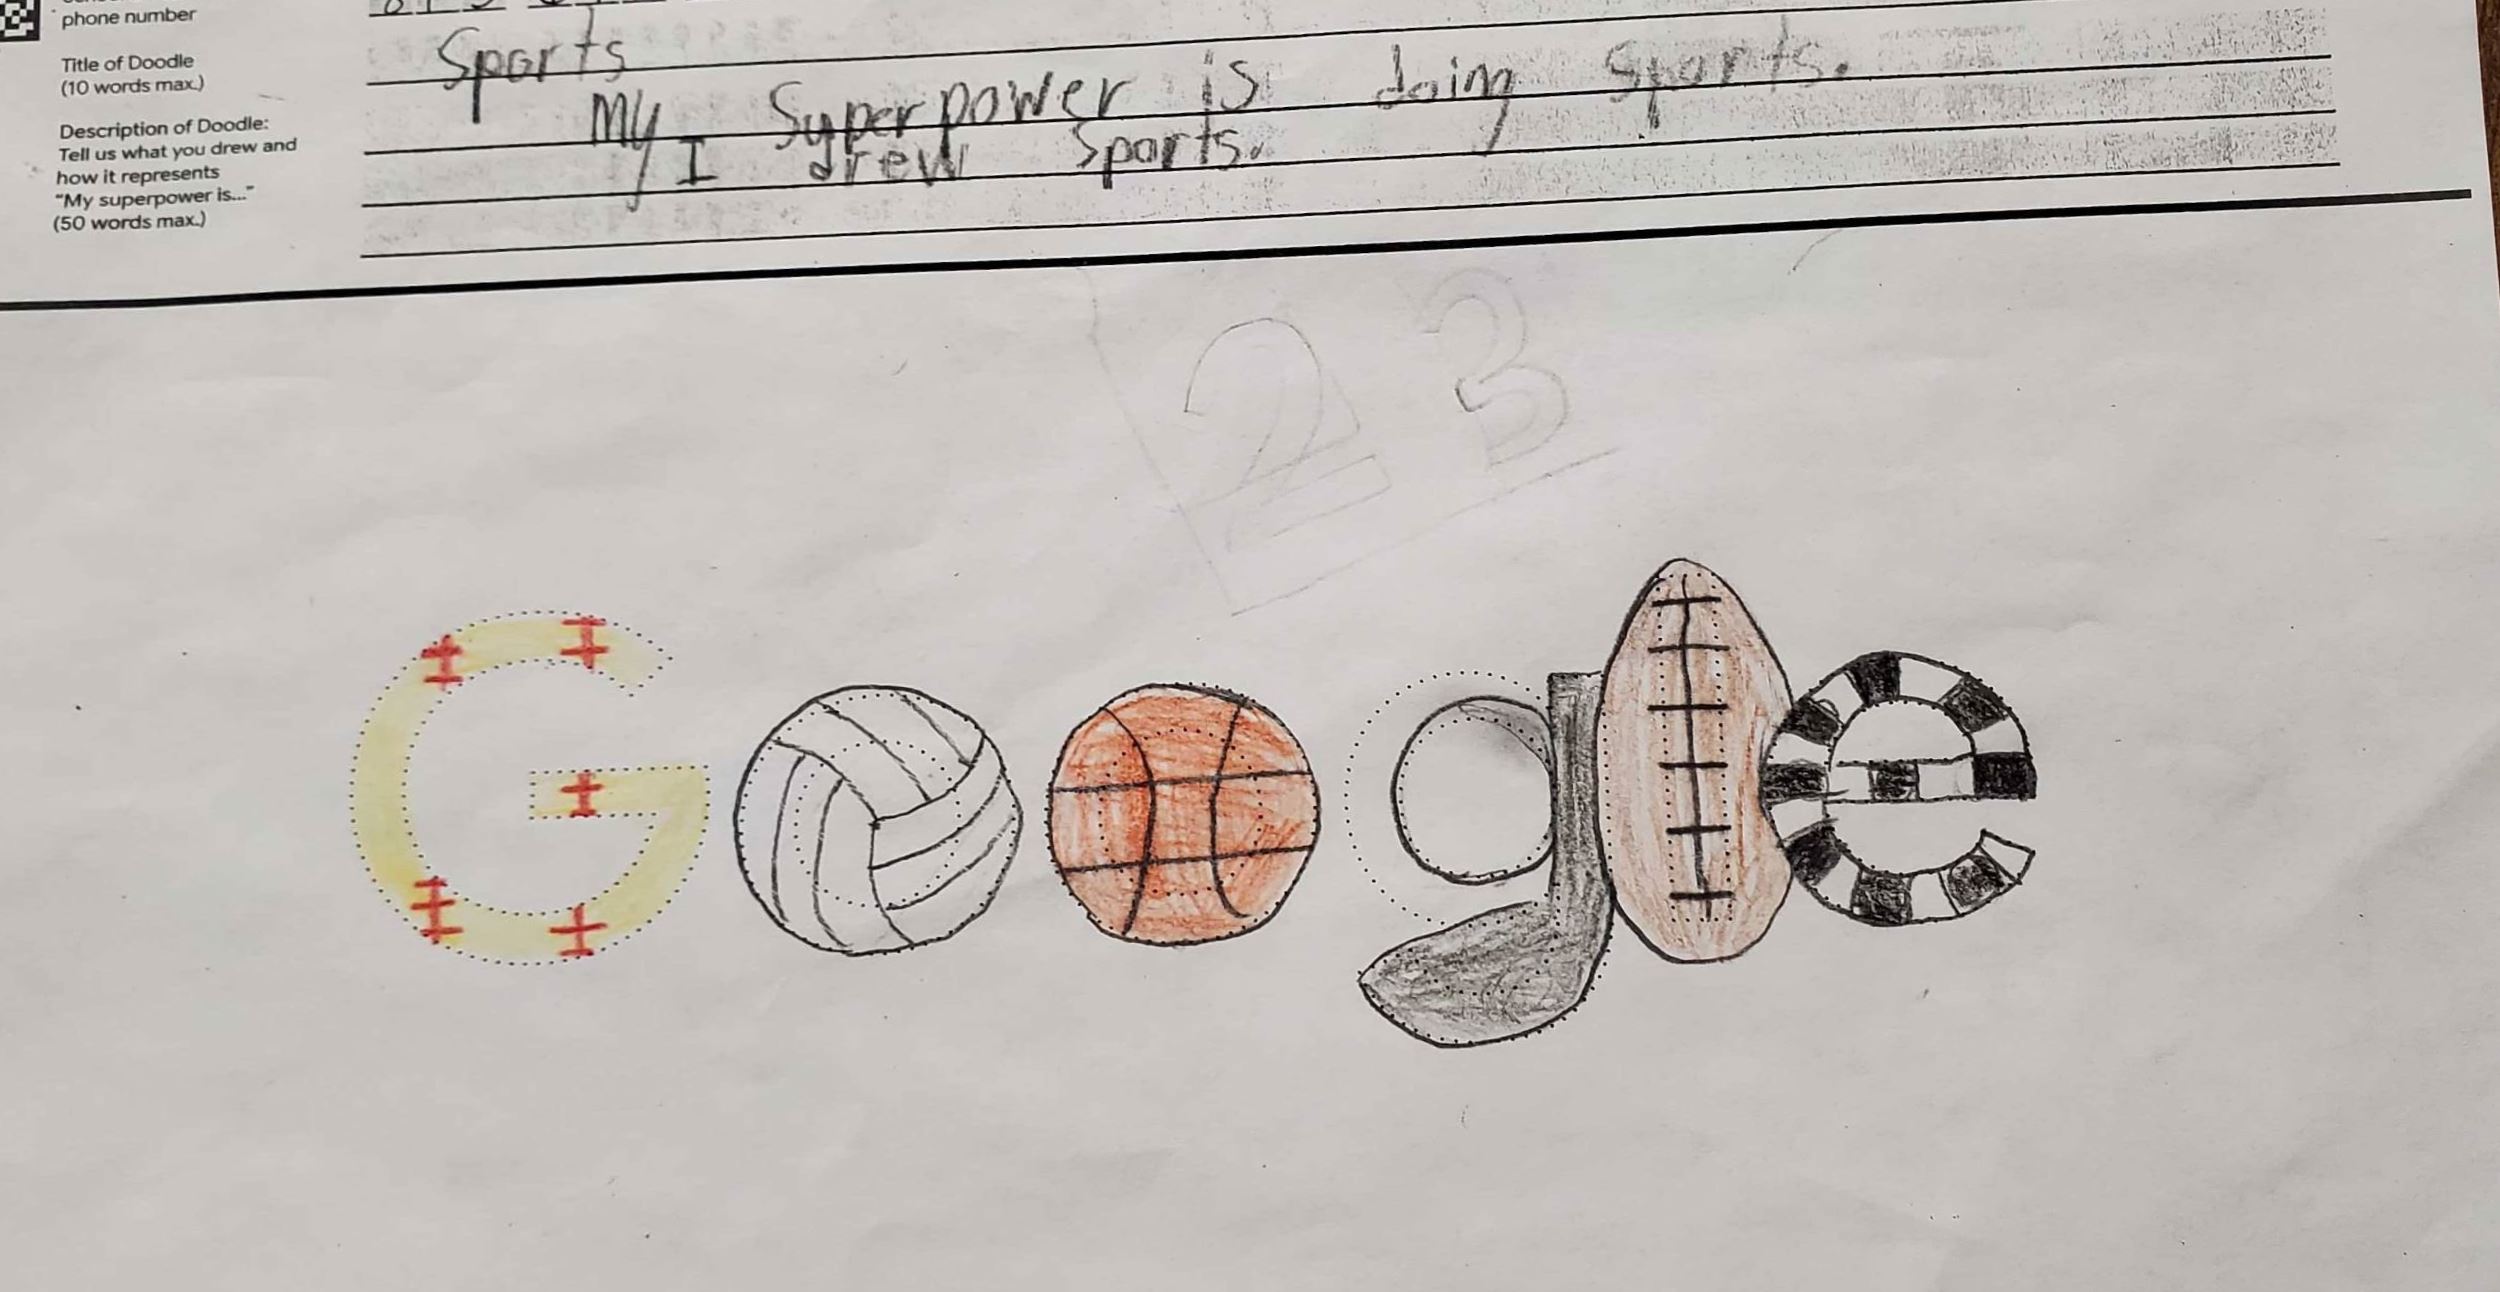 phone number
Title of Doodle
(10 words max.)
Sports
Description of Doodle:
Tell us what you drew and
how it represents
"My superpower is..."
(50 words max.)
My Superpower is doing Sports.
I drew Sports.
23
Google